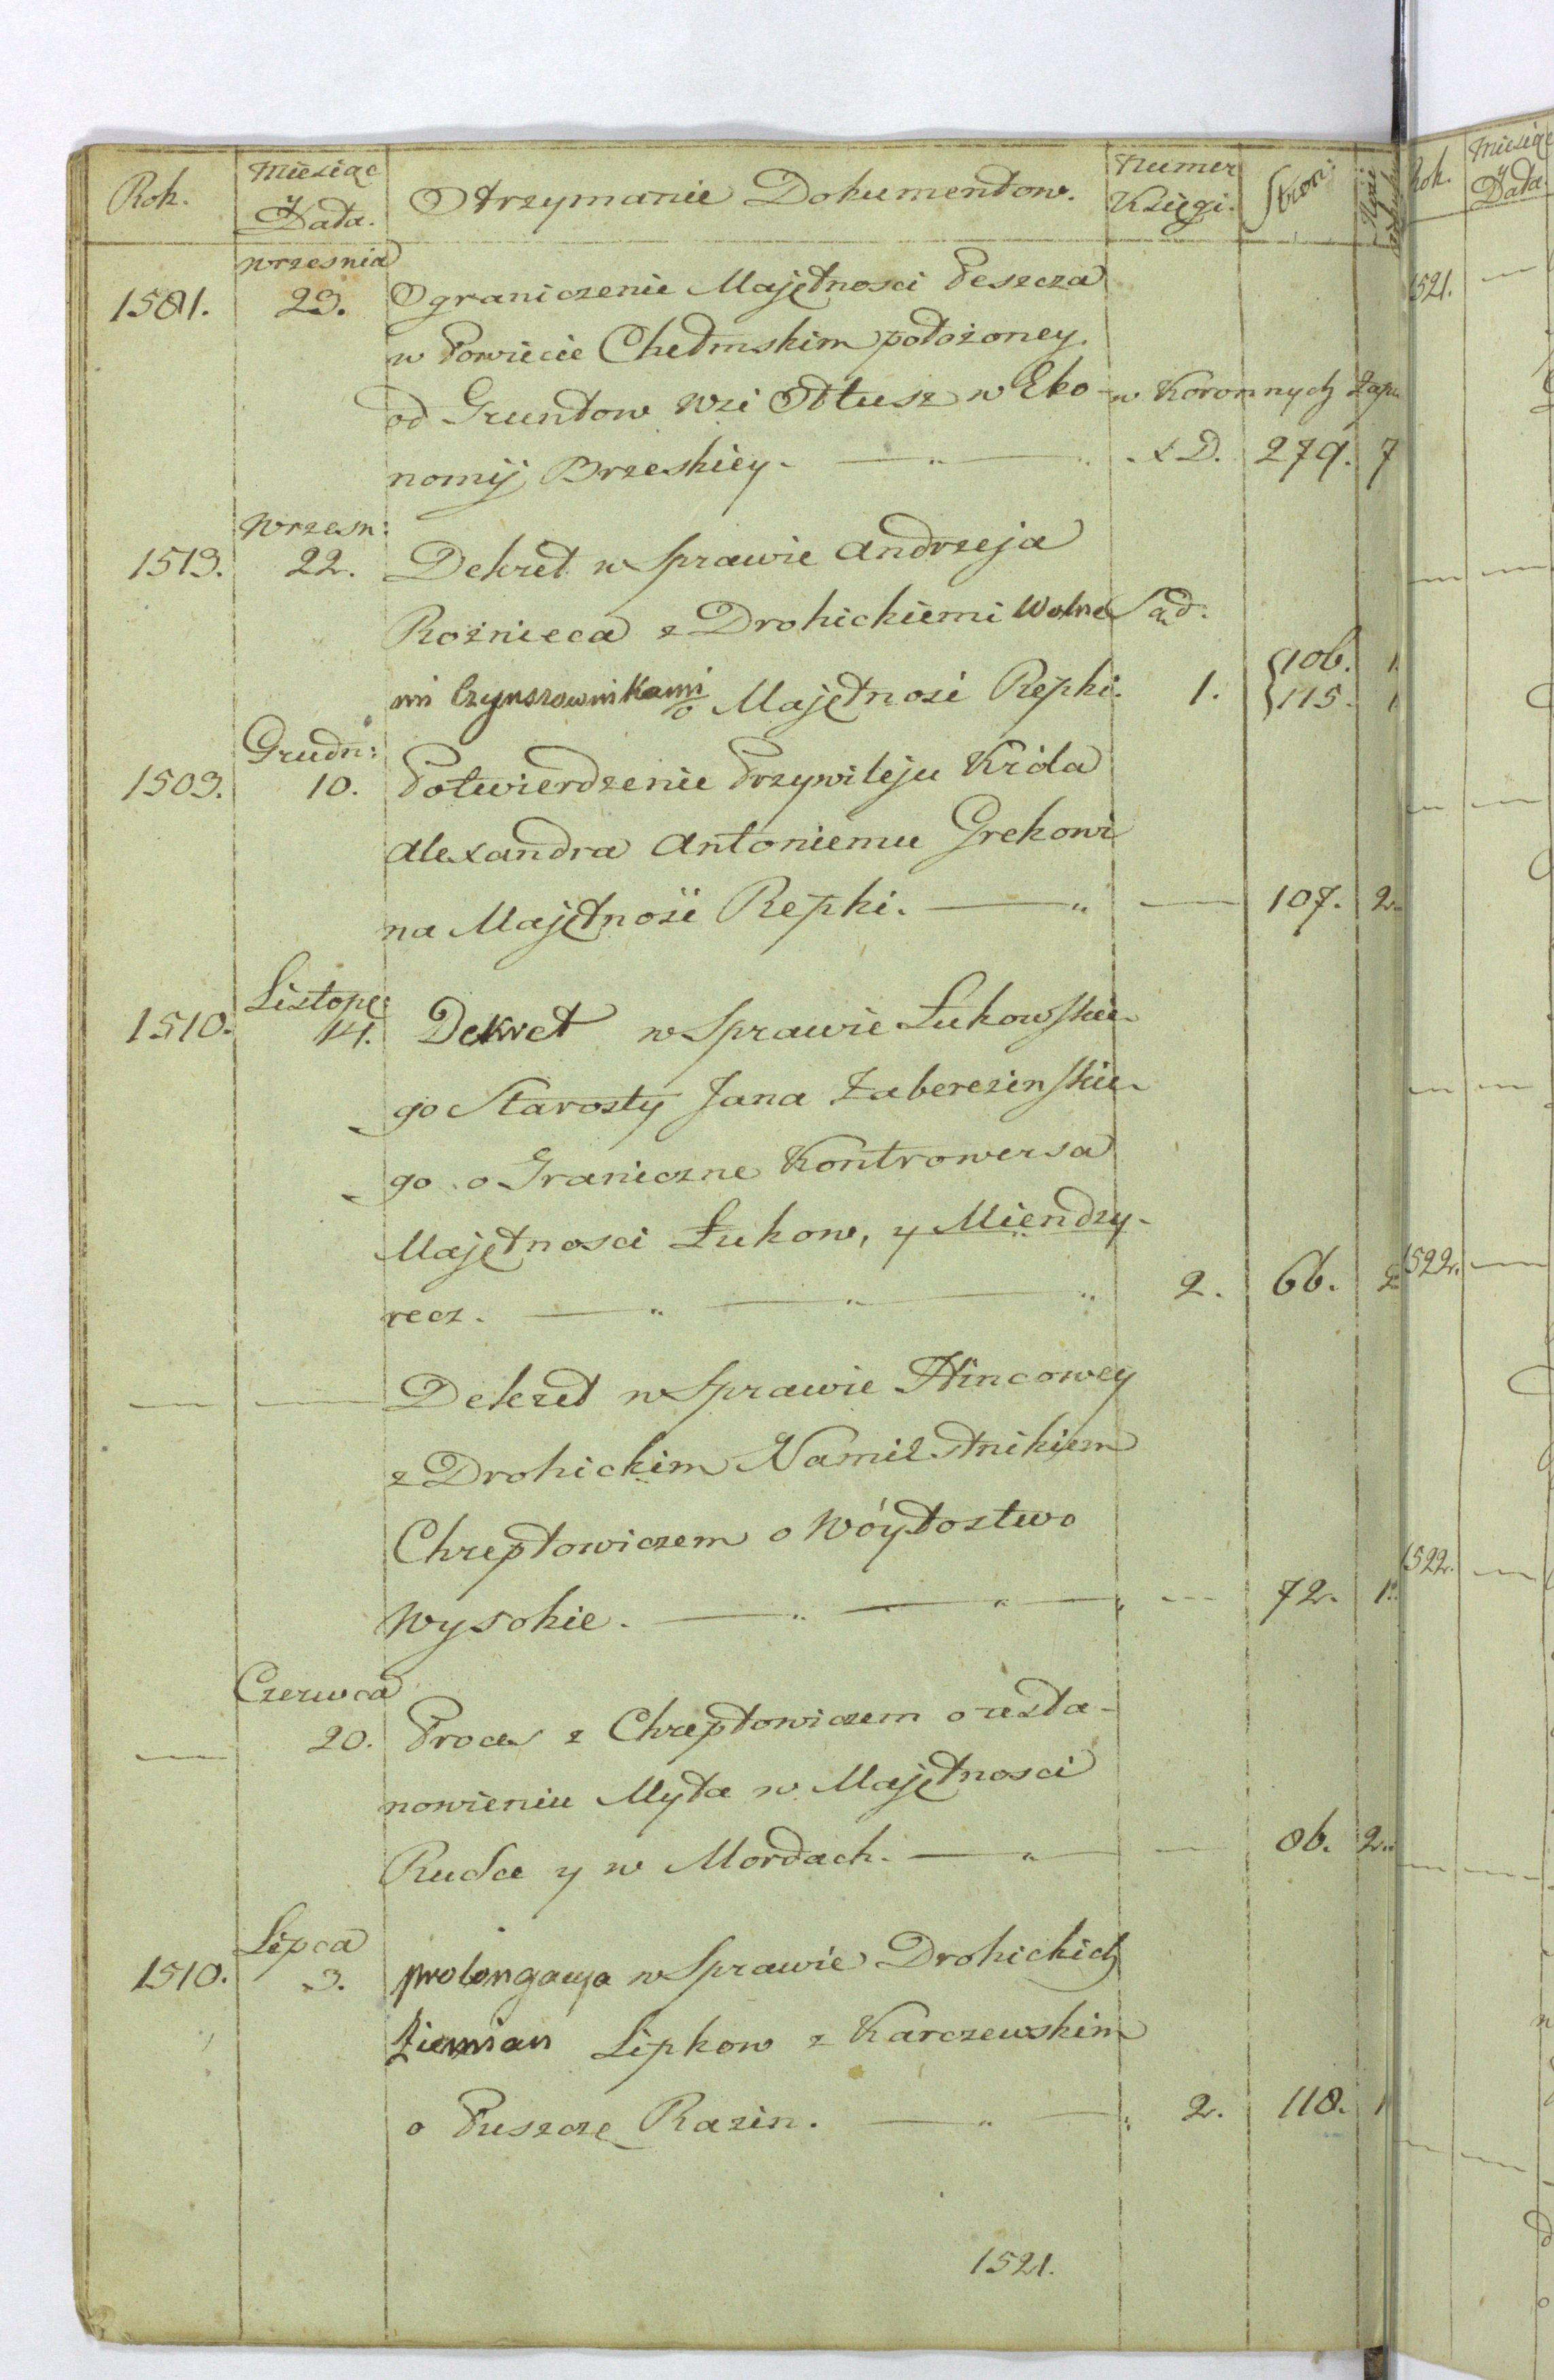 Rok. Miesiąc y Data. Otrzymanie Dokumentow. Numer Księgi. Stron:
Wrzesnia
1581. 29. Ograniczenie Majętnosci Peszcza
w Powiecie Chełmskim położoney.
od Gruntow Wsi Ortusz w Eko- w Koronnych Zapi
nomij Brzeskiey. D. 279. 7
Wrzesn:
1519. 22. Dekret w Sprawie Andrzeja
Rożnieca z Drohickiemi Wolne Sąd:
mi Czynszownikami o Majętnosć Repki. 1. {106. 1.
{115. 1
Grudn:
1509. 10. Potwierdzenie Przywileju Króla
Alexandra Antoniemu Grekowi
na Majętnosć Repki. — 107. 2
Listopa:
1510. 14. Dekret w Sprawie Łukowskie-
go Starosty Jana Zaberezinskie-
go o Graniczne Kontrowersa
Majętnosci Łukow, y Miendzy-
recz. 2. 66. 2
— — Dekret w Sprawie Hincowey
z Drohickim Namiestnikiem
Chreptowiczem o Wóytostwo
Wysokie. — 72. 1.
Czerwca
— 20. Proces z Chreptowiczem o usta-
nowieniu Myta w Majętnosci
Rudce y w Mordach. — 86. 2
Lipca
1510. 3. prolongacya w Sprawie Drohickich
Ziemian Lipkow z Karczewskim
o Puszczę Razin. 2. 118. 1
1521.
Rok. Miesiąc y Data.
1521. —
— —
— —
— —
1522. —
1522. —
— —
— —